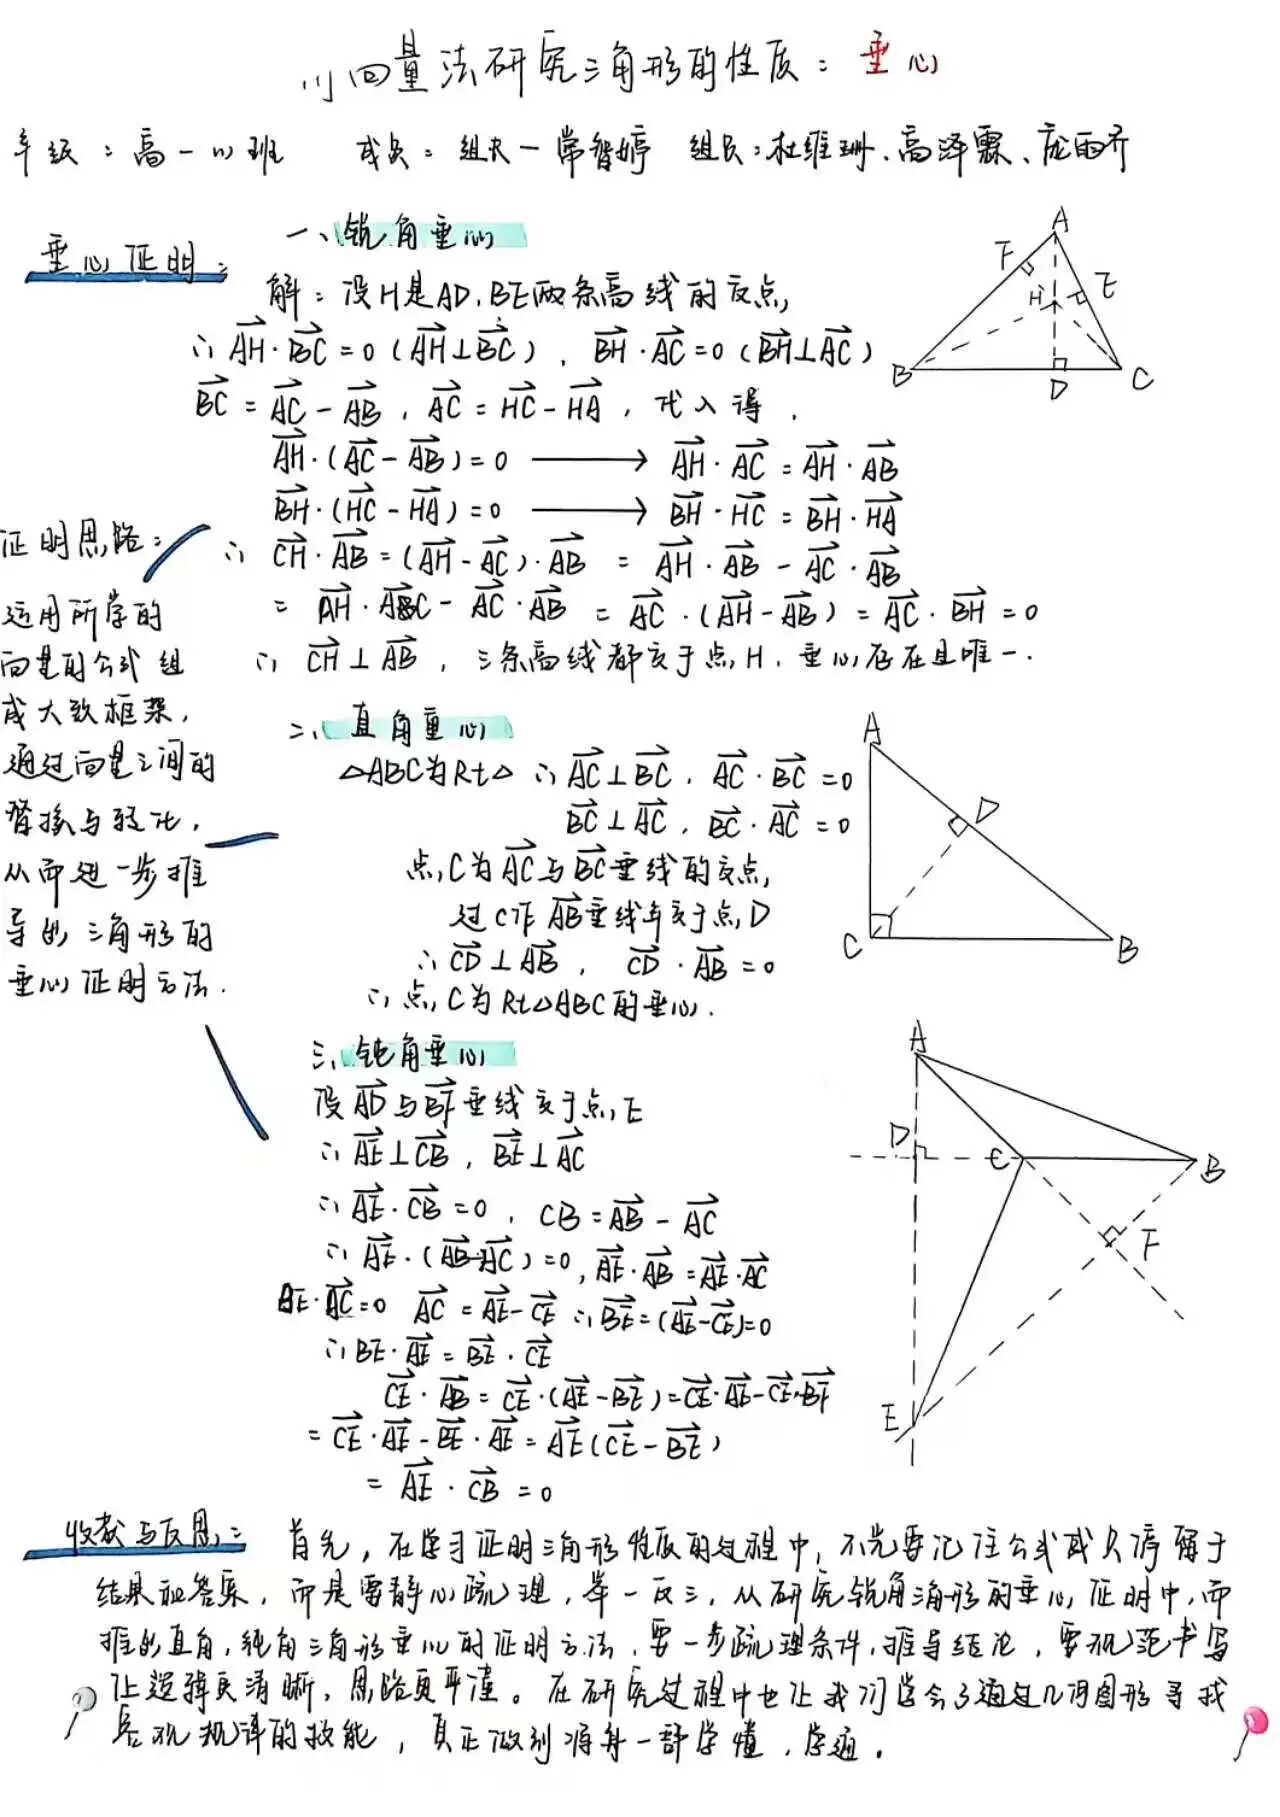 用向量法研究三角形的性质：垂心
年级：高一(1)班 成员：组长—常智婷 组员：杜维珊、高泽霖、庞雨齐
垂心证明：
一、锐角垂心
解：设H是AD、BE两条高线的交点，
∴ AH·BC=0 (AH⊥BC)，BH·AC=0 (BH⊥AC)
BC=AC-AB，AC=HC-HA，代入得，
AH·(AC-AB)=0 → AH·AC=AH·AB
BH·(HC-HA)=0 → BH·HC=BH·HA
∴ CH·AB=(AH-AC)·AB = AH·AB-AC·AB
= AH·AC-AC·AB = AC·(AH-AB)=AC·BH=0
∴ CH⊥AB，三条高线都交于点H，垂心存在且唯一.
A
F
E
H
B
D
C
证明思路：
运用所学的
向量的公式组
成大致框架，
通过向量之间的
替换与转化，
从而进一步推
导出三角形的
垂心证明方法.
二、直角垂心
△ABC为Rt△ ∴ AC⊥BC，AC·BC=0
BC⊥AC，BC·AC=0
点C为AC与BC垂线的交点，
过C作AB垂线并交于点D
∴ CD⊥AB，CD·AB=0
∴ 点C为Rt△ABC的垂心.
A
D
C
B
三、钝角垂心
设AD与BF垂线交于点E
∴ AE⊥CB，BE⊥AC
∴ AE·CB=0，CB=AB-AC
∴ AE·(AB-AC)=0，AE·AB=AE·AC
AE·AC=0 AC=AE-CE ∴BE=(AE-CE)=0
∴BE·AE=BE·CE
CE·AB=CE·(AE-BE)=CE·AE-CE·BF
=CE·AE-BE·AE=AE(CE-BE)
=AE·CB=0
A
D
C
B
F
E
收获与反思：
首先，在学习证明三角形性质的过程中，不光要记住公式或只停留于
结果和答案，而是需静心疏理，举一反三，从研究锐角三角形的垂心证明中，而
推出直角，钝角三角形垂心的证明方法，要一步疏理条件，推导结论，要规范书写
让逻辑更清晰，思路更严谨。在研究过程中也让我们学会了通过几何图形寻找
客观规律的技能，真正做到将每一部学懂，学通。